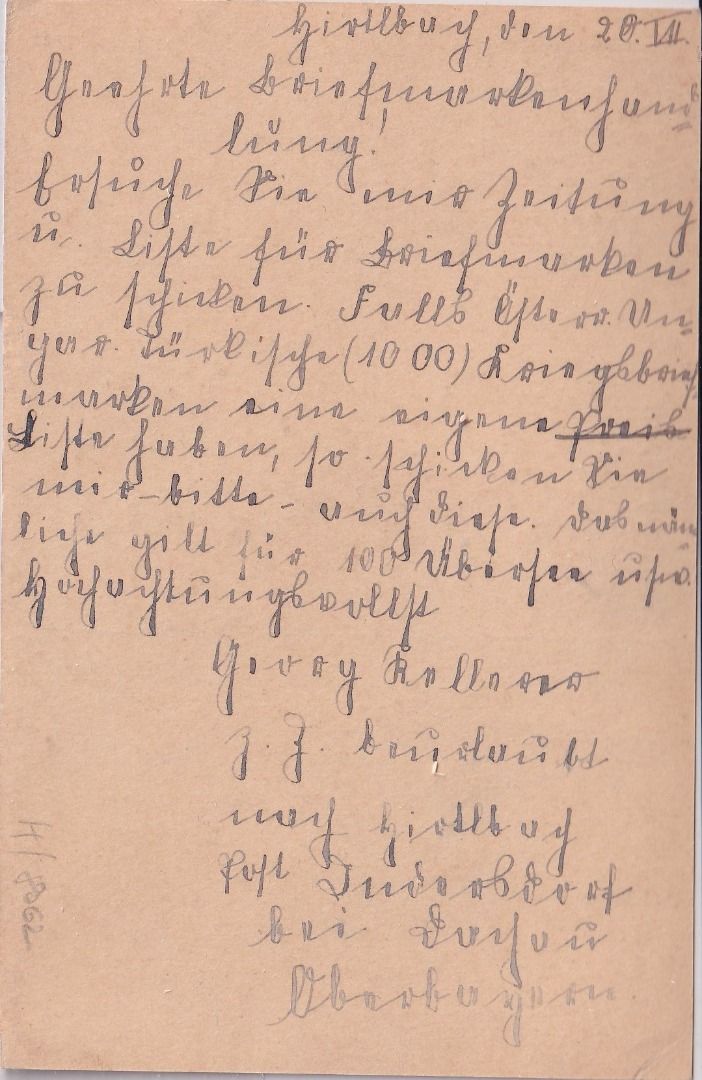 Hirtlbach, den 20. VII.
Geehrte Briefmarkenhand=
lung!
Ersuche Sie mir Zeitung
u. Liste für Briefmarken
zu schicken. Falls Österr. Un=
gar. Türkische (1000) Kriegsbrief
marken eine eigene Preis
Liste haben, so schicken Sie
mir – bitte – auch diese. Das näm
liche gilt für 100 Übersee usw.
Hochachtungsvollst
Georg Kellerer
z. Z. beurlaubt
nach Hirtlbach
Post Indersdorf
bei Dachau
Oberbayern.